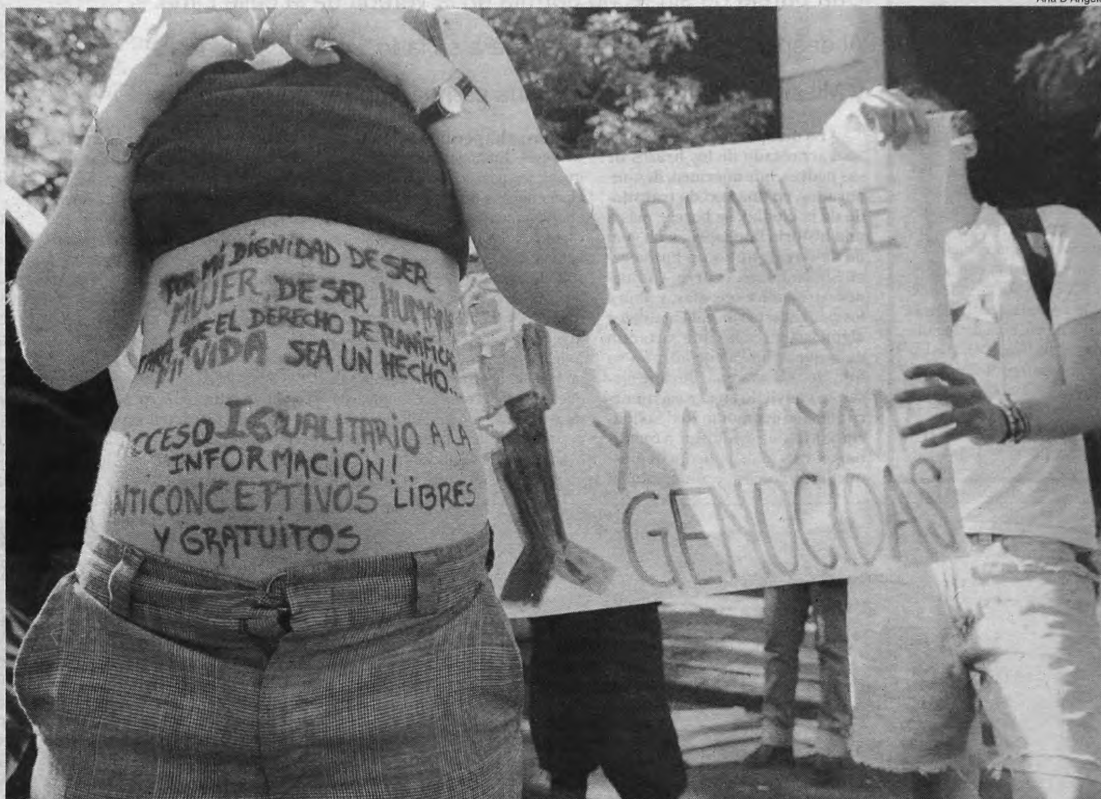 Ana D'Angelo
POR MI DIGNIDAD DE SER
MUJER, DE SER HUMANA
PARA QUE EL DERECHO DE PLANIFICAR
MI VIDA SEA UN HECHO...
ACCESO IGUALITARIO A LA
INFORMACIÓN!
ANTICONCEPTIVOS LIBRES
Y GRATUITOS
HABLAN DE
VIDA
Y APOYAN
GENOCIDAS